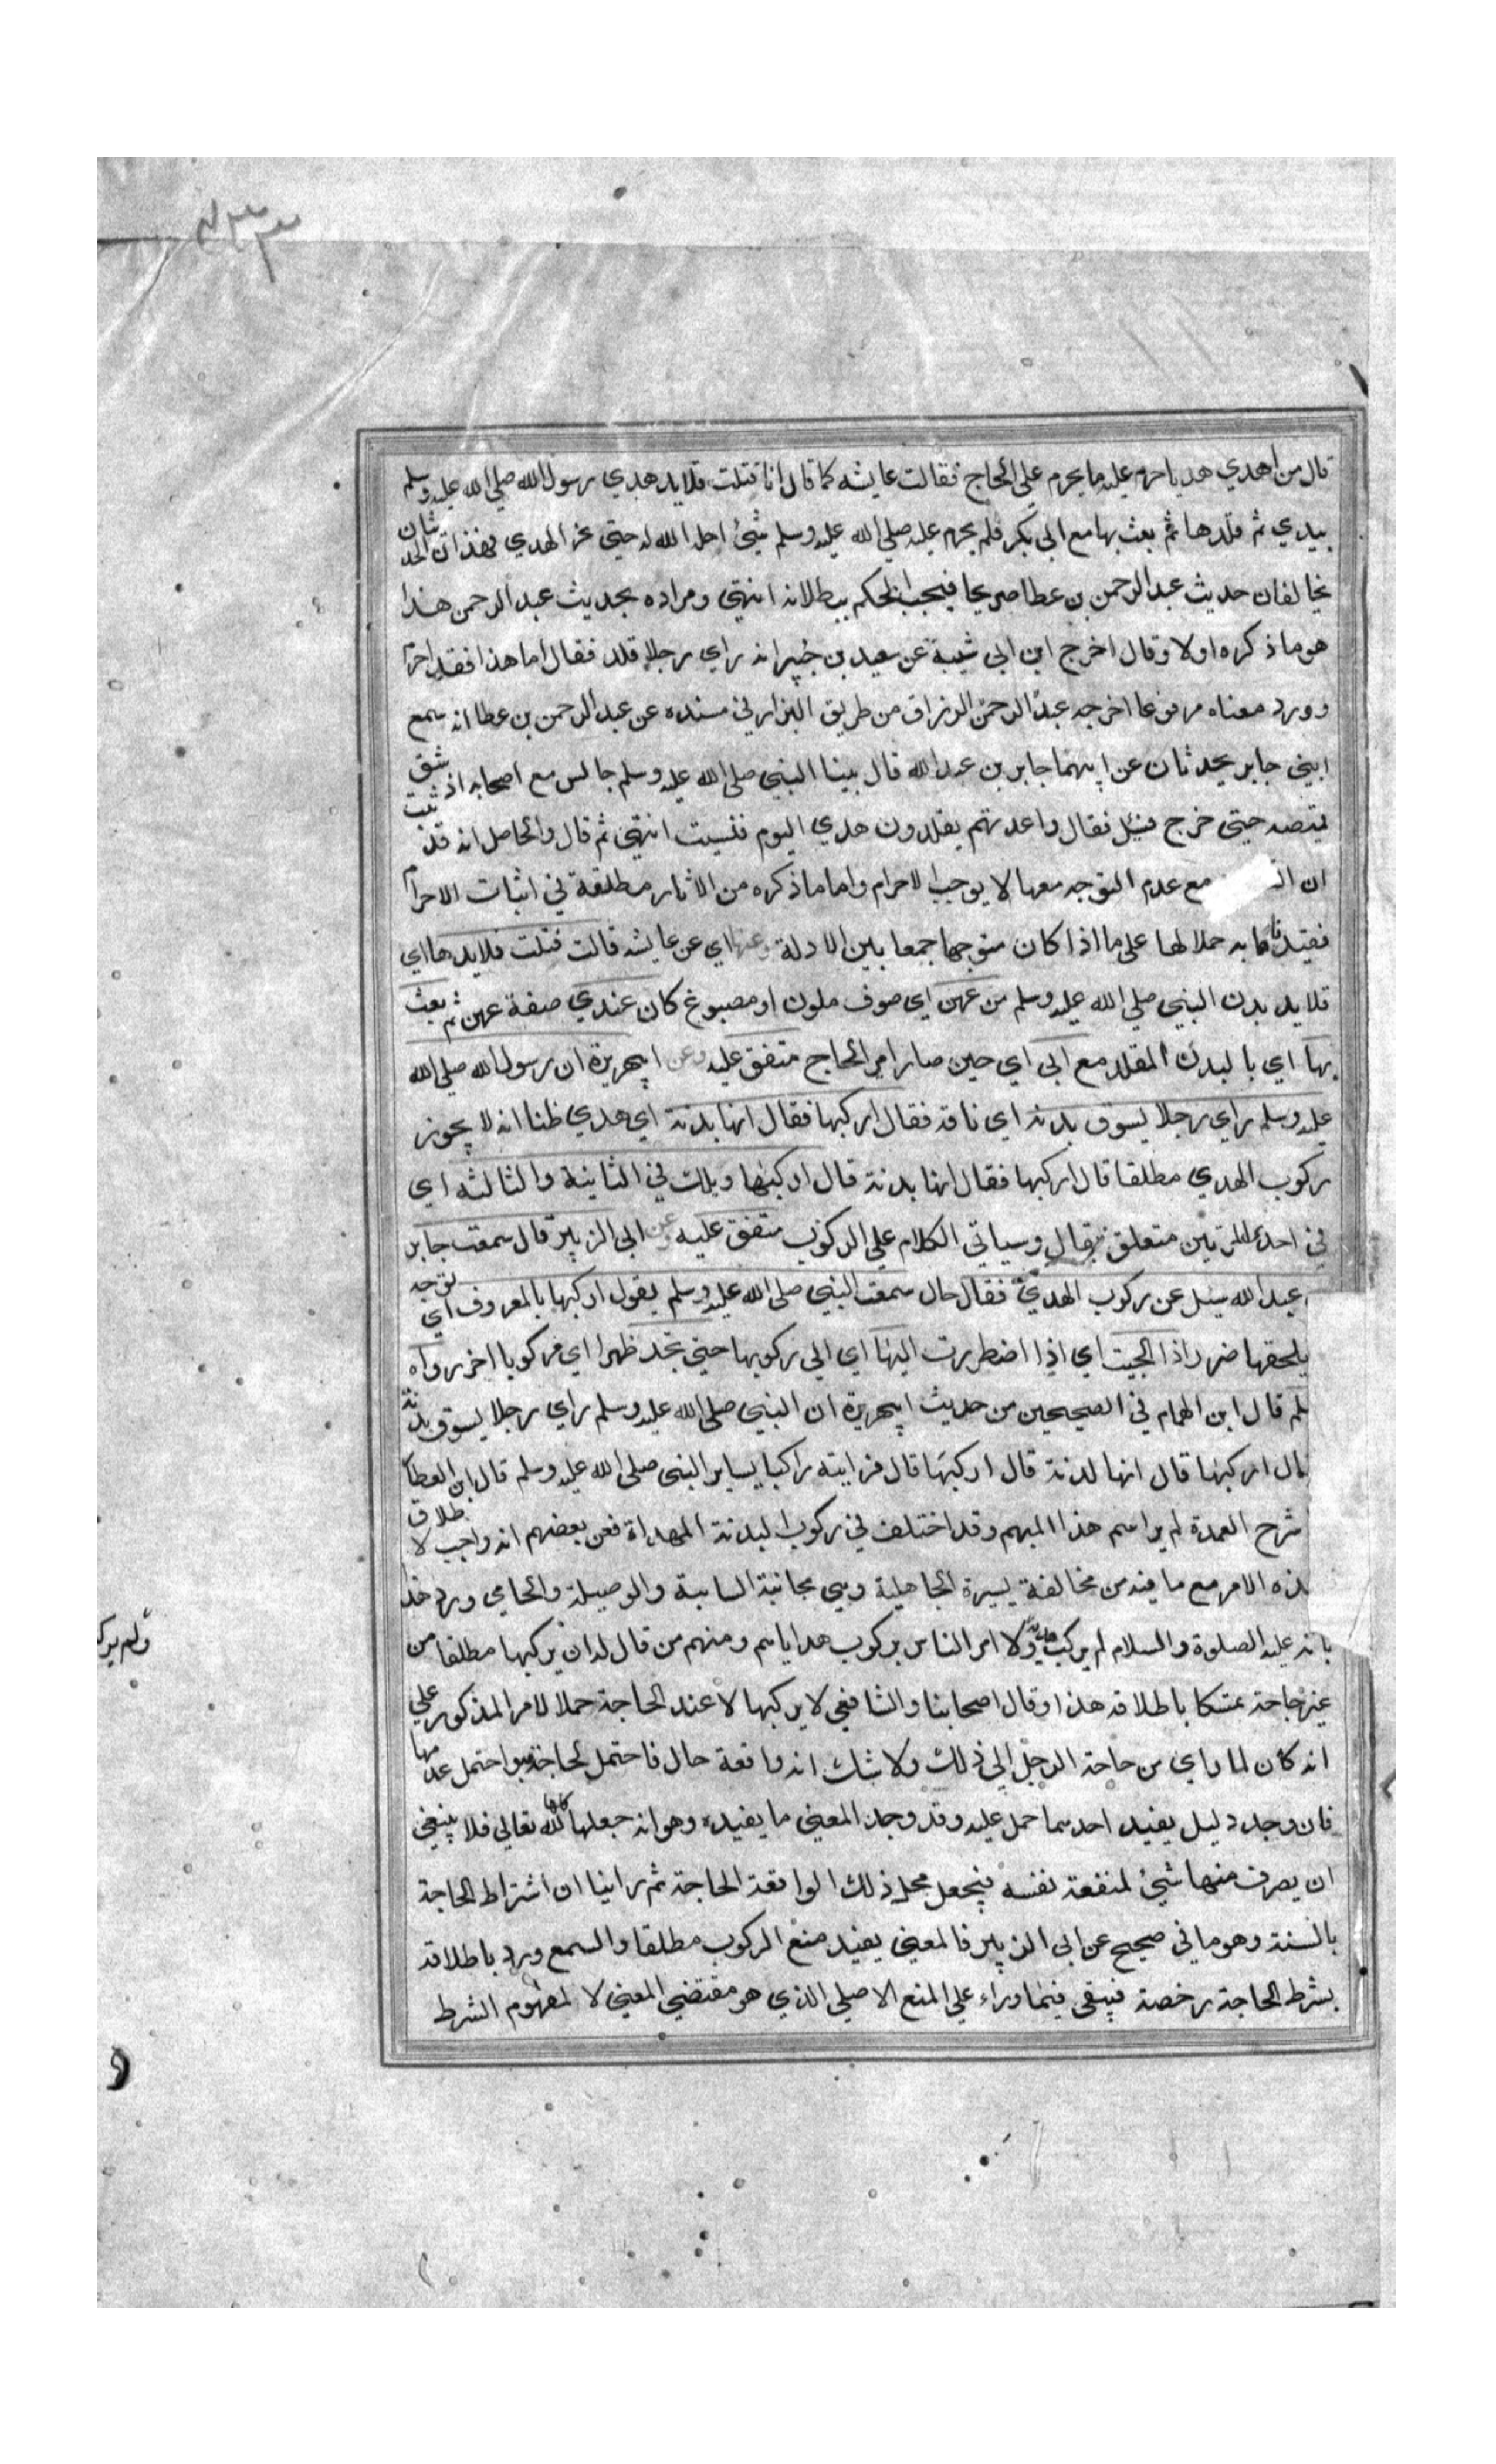 ٤٣٣
قال من اهدي هديا حرم عليه ما يحرم علي الحاج فقالت عايشه كما قال انا فتلت قلايد هدي رسول الله صلي الله عليه وسلم
بيدي ثم قلدها ثم بعث بها مع ابي بكر فلم يحرم عليه صلي الله عليه وسلم شيئ احل الله له حتي نحر الهدي فهذان الحديثان
يخالفان حديث عبد الرحمن بن عطا صريحا فيجب الحكم ببطلانه انتهي ومراده بحديث عبد الرحمن هذا
هو ما ذكره اولا وقال اخرج ابن ابي شيبة عن سعيد بن جبير انه راي رجلا قلد فقال اما هذا فقد احرم
وورد معناه مرفوعا اخرجه عبد الرحمن الرزاق من طريق البزار في مسنده عن عبد الرحمن بن عطا انه سمع
ابني جابر يحدثان عن ابيهما جابر بن عبد الله قال بينا النبي صلي الله عليه وسلم جالس مع اصحابه اذ شق
قميصه حتي خرج فسئل فقال واعدتهم يقلدون هدي اليوم فنسيت انتهي ثم قال والحاصل انه قد ثبت
ان مع عدم التوجه معها لا يوجب الاحرام واما ما ذكره من الاثار مطلقة في اثبات الاحرام
فقيدناها به حملا لها علي ما اذا كان متوجها جمعا بين الادلة وعنها اي عن عايشه قالت فتلت قلايدها اي
قلايد بدن النبي صلي الله عليه وسلم من عهن اي صوف ملون او مصبوغ كان عندي صفة عهن ثم بعث
بها اي بالبدن المقلد مع ابي اي حين صار امير الحاج متفق عليه وعن ابيهريرة ان رسول الله صلي الله
عليه وسلم راي رجلا يسوق بدنة اي ناقة فقال اركبها فقال انها بدنة اي هدي ظنا انه لا يجوز
ركوب الهدي مطلقا قال اركبها فقال انها بدنة قال اركبها ويلك في الثانية والثالثه اي
في احدي المرتين متعلق بقال وسياتي الكلام علي الركوب متفق عليه وعن ابي الزبير قال سمعت جابر
عبد الله سئل عن ركوب الهدي فقال حال سمعت النبي صلي الله عليه وسلم يقول اركبها بالمعروف اي بوجه
يلحقها ضرر اذا الجيت اي اذا اضطررت اليها اي الي ركوبها حتي تجد ظهرا اي مركوبا اخر رواه
لم قال ابن الهمام في الصحيحين من حديث ابيهريرة ان النبي صلي الله عليه وسلم راي رجلا يسوق بدنة
قال اركبها قال انها لبدنة قال اركبها قال فرايته راكبا يساير النبي صلي الله عليه وسلم قال ابن العطا
شرح العمدة لم ير اسم هذا المبهم وقد اختلف في ركوب البدنة المهداة فعن بعضهم انه واجب لاطلاق
هذه الامر مع ما فيه من مخالفة لسيرة الجاهلية وهي مجانبة السايبة والوصيلة والحامي ورد هذا
بانه عليه الصلوة والسلام لم يركب هديه ولا امر الناس بركوب هداياهم ومنهم من قال له ان يركبها مطلقا من
غير حاجة تمسكا باطلاقه هذا وقال اصحابنا والشافعي لا يركبها الا عند الحاجة حملا للامر المذكور علي
انه كان لما راي من حاجة الرجل الي ذلك ولا شك انه واقعة حال فاحتمل الحاجة به واحتمل عدمها
فان وجد دليل يفيد احدهما حمل عليه وقد وجد المعني ما يفيده وهو انه جعلها كلها لله تعالي فلا ينبغي
ان يصرف منها شيئ لمنفعة نفسه فيجعل محل ذلك الواقعة الحاجة ثم راينا ان اشتراط الحاجة
بالسنة وهو ما في صحيح عن ابي الزبير فالمعني يفيد منع الركوب مطلقا والسمع ورد باطلاقه
بشرط الحاجة رخصة فيبقي فيما وراء علي المنع الاصلي الذي هو مقتضي المعني لا لمفهوم الشرط